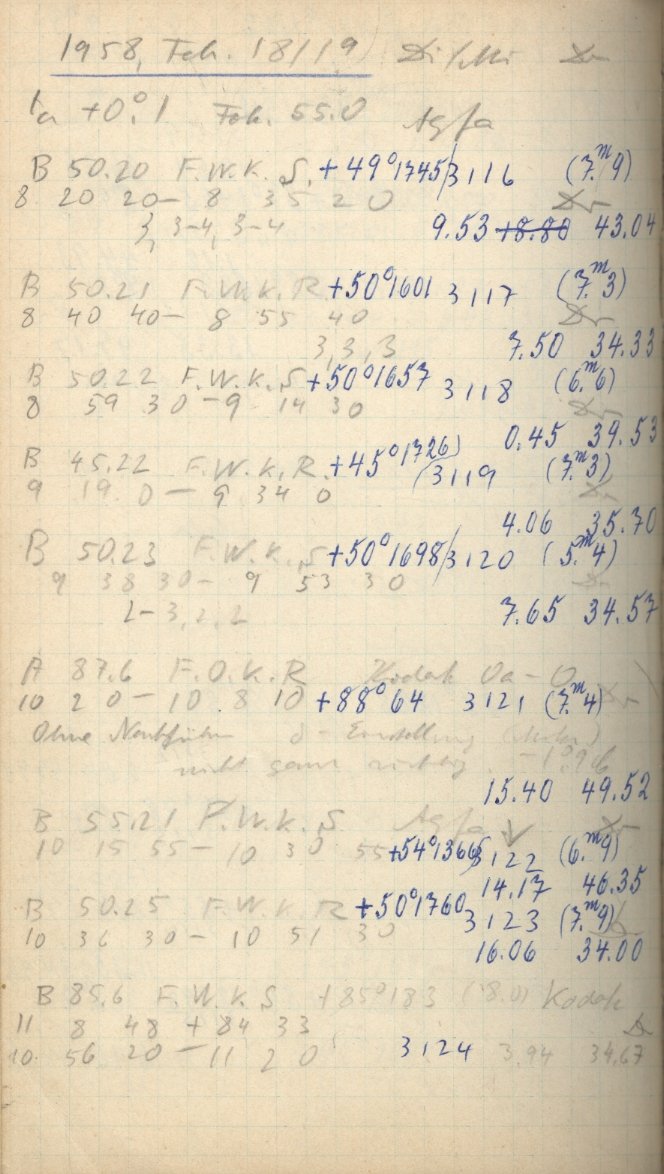 1958, Feb. 18/19
ta +0°.1 Fok. 55.0 Agfa
B 50.20 F.W.K. S. +49°1745/3116 (7.ᵐ9)
8 20 20 – 8 35 20 Dr
3, 3-4, 3-4 9.53 +8.80 43.04
B 50.21 F.W.K. R +50°1601 3117 (7.ᵐ3)
8 40 40 – 8 55 40 Dr
3, 3, 3 7.50 34.33
B 50.22 F.W.K. S +50°1657 3118 (6.ᵐ6)
8 59 30 – 9 14 30 Dr
0.45 39.53
B 45.22 F.W.K. R. +45°1726) (3119 (7.ᵐ3)
9 19. 0 – 9 34 0 Dr
4.06 35.70
B 50.23 F.W.K. S +50°1698/3120 (5.ᵐ4)
9 38 30 – 9 53 30 Dr
2-3, 2, 2 7.65 34.57
A 87.6 F.O.K.R Kodak Oa-O
10 2 0 – 10 8 10 +88°64 3121 (7.ᵐ4) Dr
Ohne Nachführen δ-Einstellung
nicht ganz richtig
15.40 49.52
B 55.21 F.W.K. S. Agfa Dr
10 15 55 – 10 30 55 +54°1366 3122 (6.ᵐ9)
14.17 46.35
B 50.25 F.W.K. R +50°1760 3123 (7.ᵐ9)
10 36 30 – 10 51 30 Dr
16.06 34.00
B 85.6 F.W.K. S +85°183 (8.0) Kodak
11 8 48 + 84 33 Dr
10. 56 20 – 11 2 0 3124 3.94 34.67